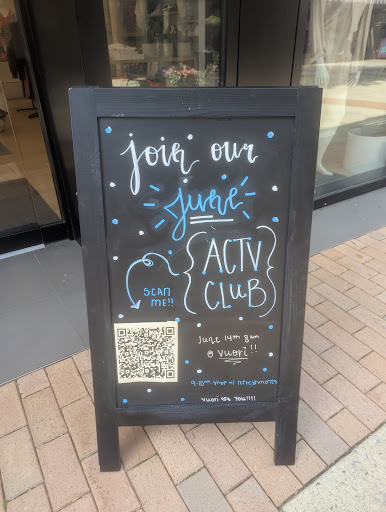 join our
june
ACTV
CLUB
SCAN
ME!!
June 14th 8am
@ vuori!!
w/ refreshments
vuori
you!!!!